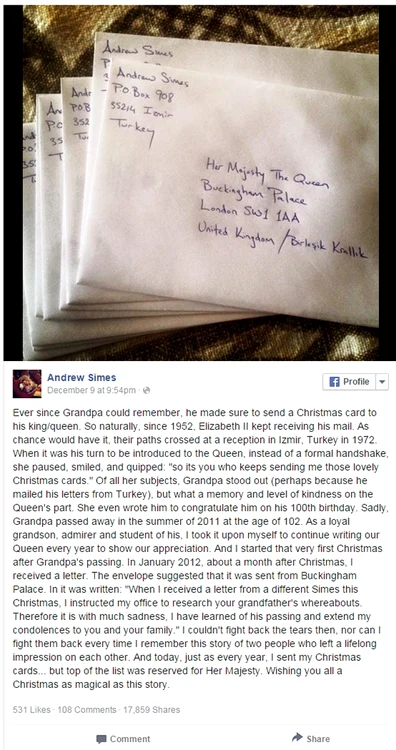 Andrew Simes
Andrew Simes
PO Box 908
35214 Izmir
Turkey
Her Majesty The Queen
Buckingham Palace
London SW1 1AA
United Kingdom / Birleşik Krallık
Andrew Simes
December 9 at 9:54pm ·
Profile
Ever since Grandpa could remember, he made sure to send a Christmas card to
his king/queen. So naturally, since 1952, Elizabeth II kept receiving his mail. As
chance would have it, their paths crossed at a reception in Izmir, Turkey in 1972.
When it was his turn to be introduced to the Queen, instead of a formal handshake,
she paused, smiled, and quipped: "so its you who keeps sending me those lovely
Christmas cards." Of all her subjects, Grandpa stood out (perhaps because he
mailed his letters from Turkey), but what a memory and level of kindness on the
Queen's part. She even wrote him to congratulate him on his 100th birthday. Sadly,
Grandpa passed away in the summer of 2011 at the age of 102. As a loyal
grandson, admirer and student of his, I took it upon myself to continue writing our
Queen every year to show our appreciation. And I started that very first Christmas
after Grandpa's passing. In January 2012, about a month after Christmas, I
received a letter. The envelope suggested that it was sent from Buckingham
Palace. In it was written: "When I received a letter from a different Simes this
Christmas, I instructed my office to research your grandfather's whereabouts.
Therefore it is with much sadness, I have learned of his passing and extend my
condolences to you and your family." I couldn't fight back the tears then, nor can I
fight them back every time I remember this story of two people who left a lifelong
impression on each other. And today, just as every year, I sent my Christmas
cards... but top of the list was reserved for Her Majesty. Wishing you all a
Christmas as magical as this story.
531 Likes · 108 Comments · 17,859 Shares
Comment
Share